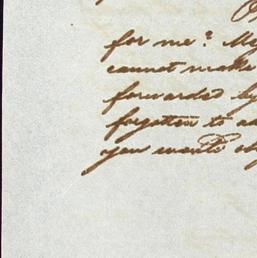 for me? My
cannot make
forwarded by
forgotten to
you